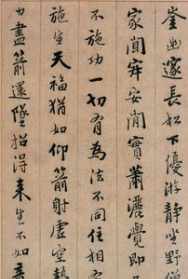 崟幽邃長松下優游靜坐野僧
家闃寂安閒實蕭灑覺即
不施功一切有為法不同住相
施生天福猶如仰箭射虛空勢
力盡箭還墜招得來生不如意